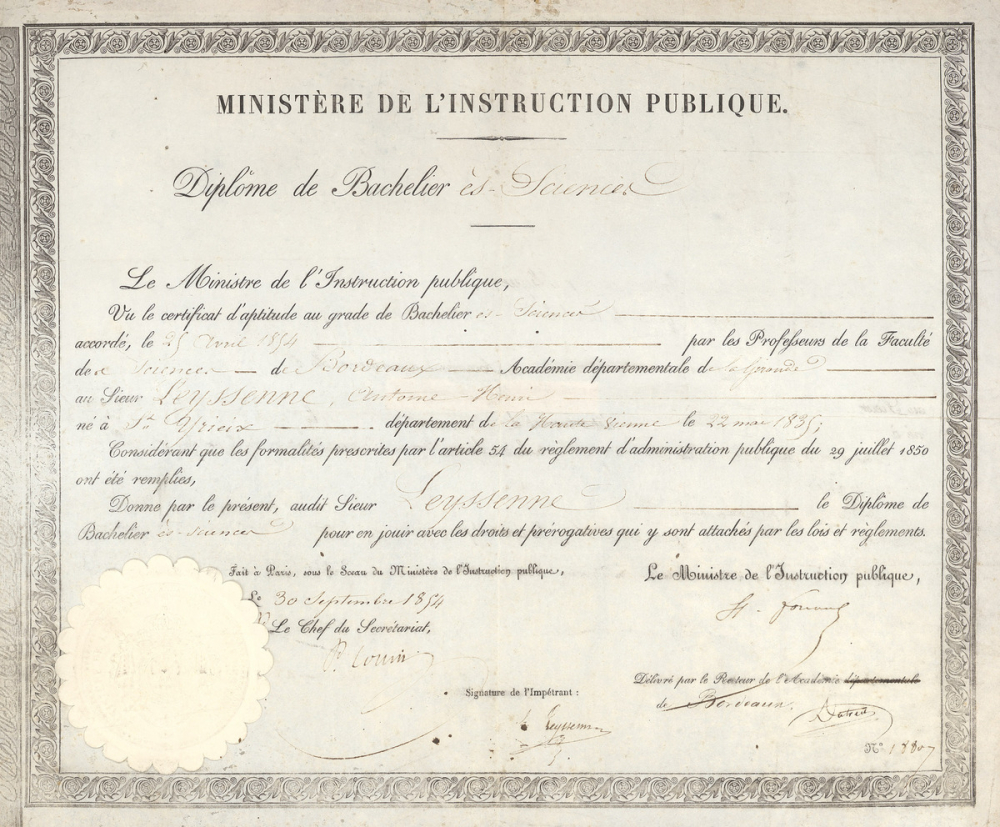 MINISTÈRE DE L'INSTRUCTION PUBLIQUE.
Diplôme de Bachelier ès-Sciences
Le Ministre de l'Instruction publique,
Vu le certificat d'aptitude au grade de Bachelier ès-Sciences
accordé, le 25 Avril 1854 par les Professeurs de la Faculté
des Sciences de Bordeaux Académie départementale de la Gironde
au Sieur Leyssenne, Antoine Henri
né à St Yrieix département de la Haute Vienne le 22 mai 1835;
Considérant que les formalités prescrites par l'article 54 du règlement d'administration publique du 29 juillet 1850
ont été remplies,
Donne par le présent, audit Sieur Leyssenne le Diplôme de
Bachelier ès-sciences pour en jouir avec les droits et prérogatives qui y sont attachés par les lois et règlements.
Fait à Paris, sous le Sceau du Ministère de l'Instruction publique,
Le 30 Septembre 1854
Le Chef du Secrétariat,
Le Ministre de l'Instruction publique,
H. Fortoul
Délivré par le Recteur de l'Académie départementale
de Bordeaux.
Signature de l'Impétrant :
Leyssenne
N° 18807